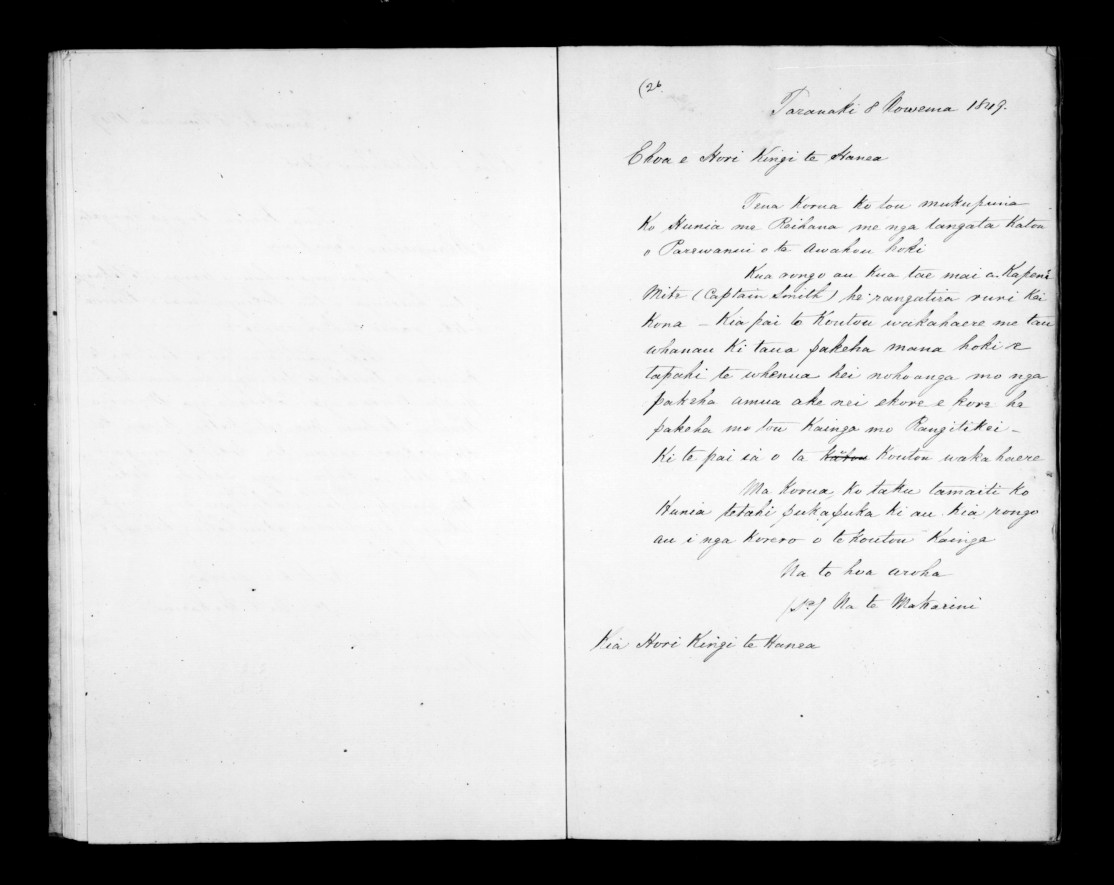 (26
Taranaki 8 Nowema 1849.
Ehoa e Hori Kingi te Hanea
Tena Korua ko tou mukupuna
Ko Hunia me Reihana me nga tangata Katoa
o Parewanui o te Awahou hoki
Kua rongo au kua tae mai a Kapene
Mite (Captain Smith) he rangatira ruri kei
Kona - Kia pai te Koutou wakahaere me tau
whanau ki taua pakeha mana hoki e
tapahi te whenua hei nohoanga mo nga
pakeha amua ake nei ekore e kore he
pakeha mo tou Kainga mo Rangitikei -
Ki te pai ia o ta Kātou Koutou wakahaere
Ma Korua ko taku tamaiti ko
Hunia tetahi pukapuka ki au kia rongo
au i nga korero o te Koutou Kainga
Na to hoa aroha
Na te Makarini
Kia Hori Kingi te Hanea